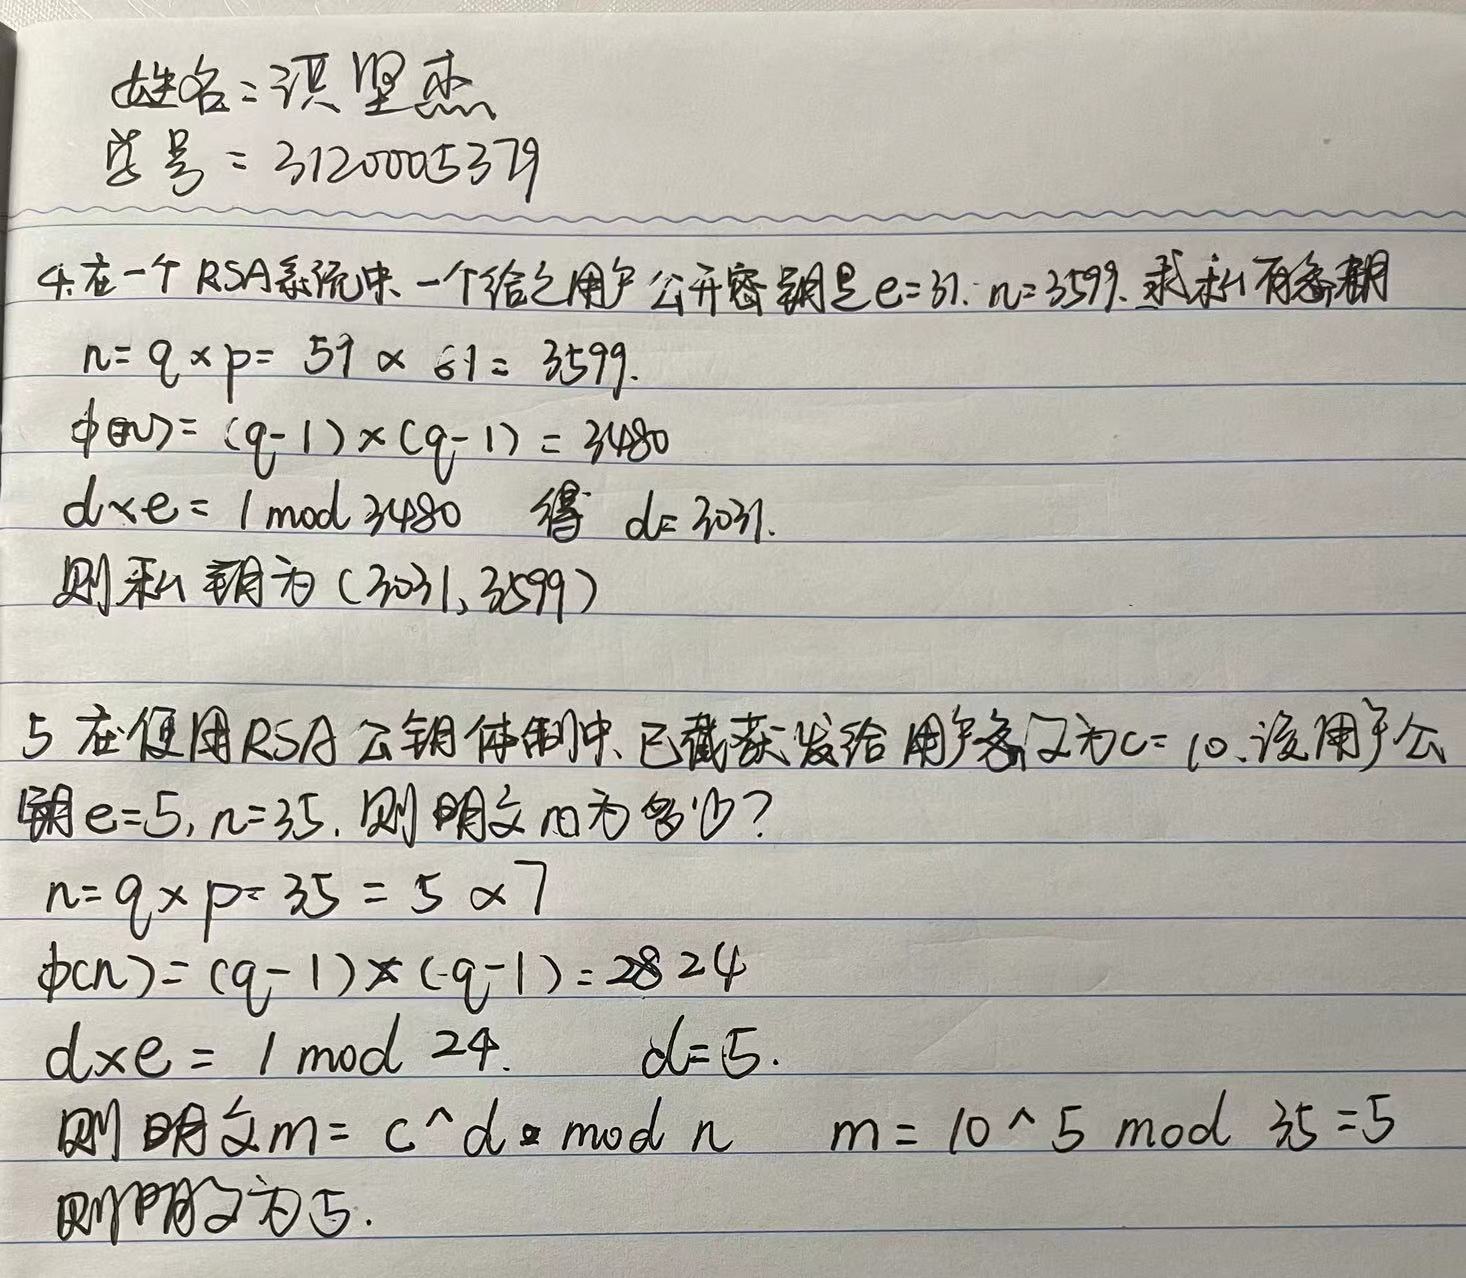 姓名：洪坚杰
学号：3120005379
4.在一个RSA系统中、一个给定用户公开密钥是e=31. n=3599. 求私有密钥
n=q×p= 59×61= 3599.
φ(n)=(q-1)×(q-1)=3480
d×e= 1 mod 3480 得 d=3031.
则私钥为(3031,3599)
5 在使用RSA公钥体制中、已截获发给用户密文为c=10、该用户公
钥e=5, n=35. 则明文m为多少?
n=q×p=35=5×7
φ(n)=(q-1)×(q-1)=24
d×e= 1 mod 24. d=5.
则明文m= c^d mod n m= 10^5 mod 35=5
则明文为5.